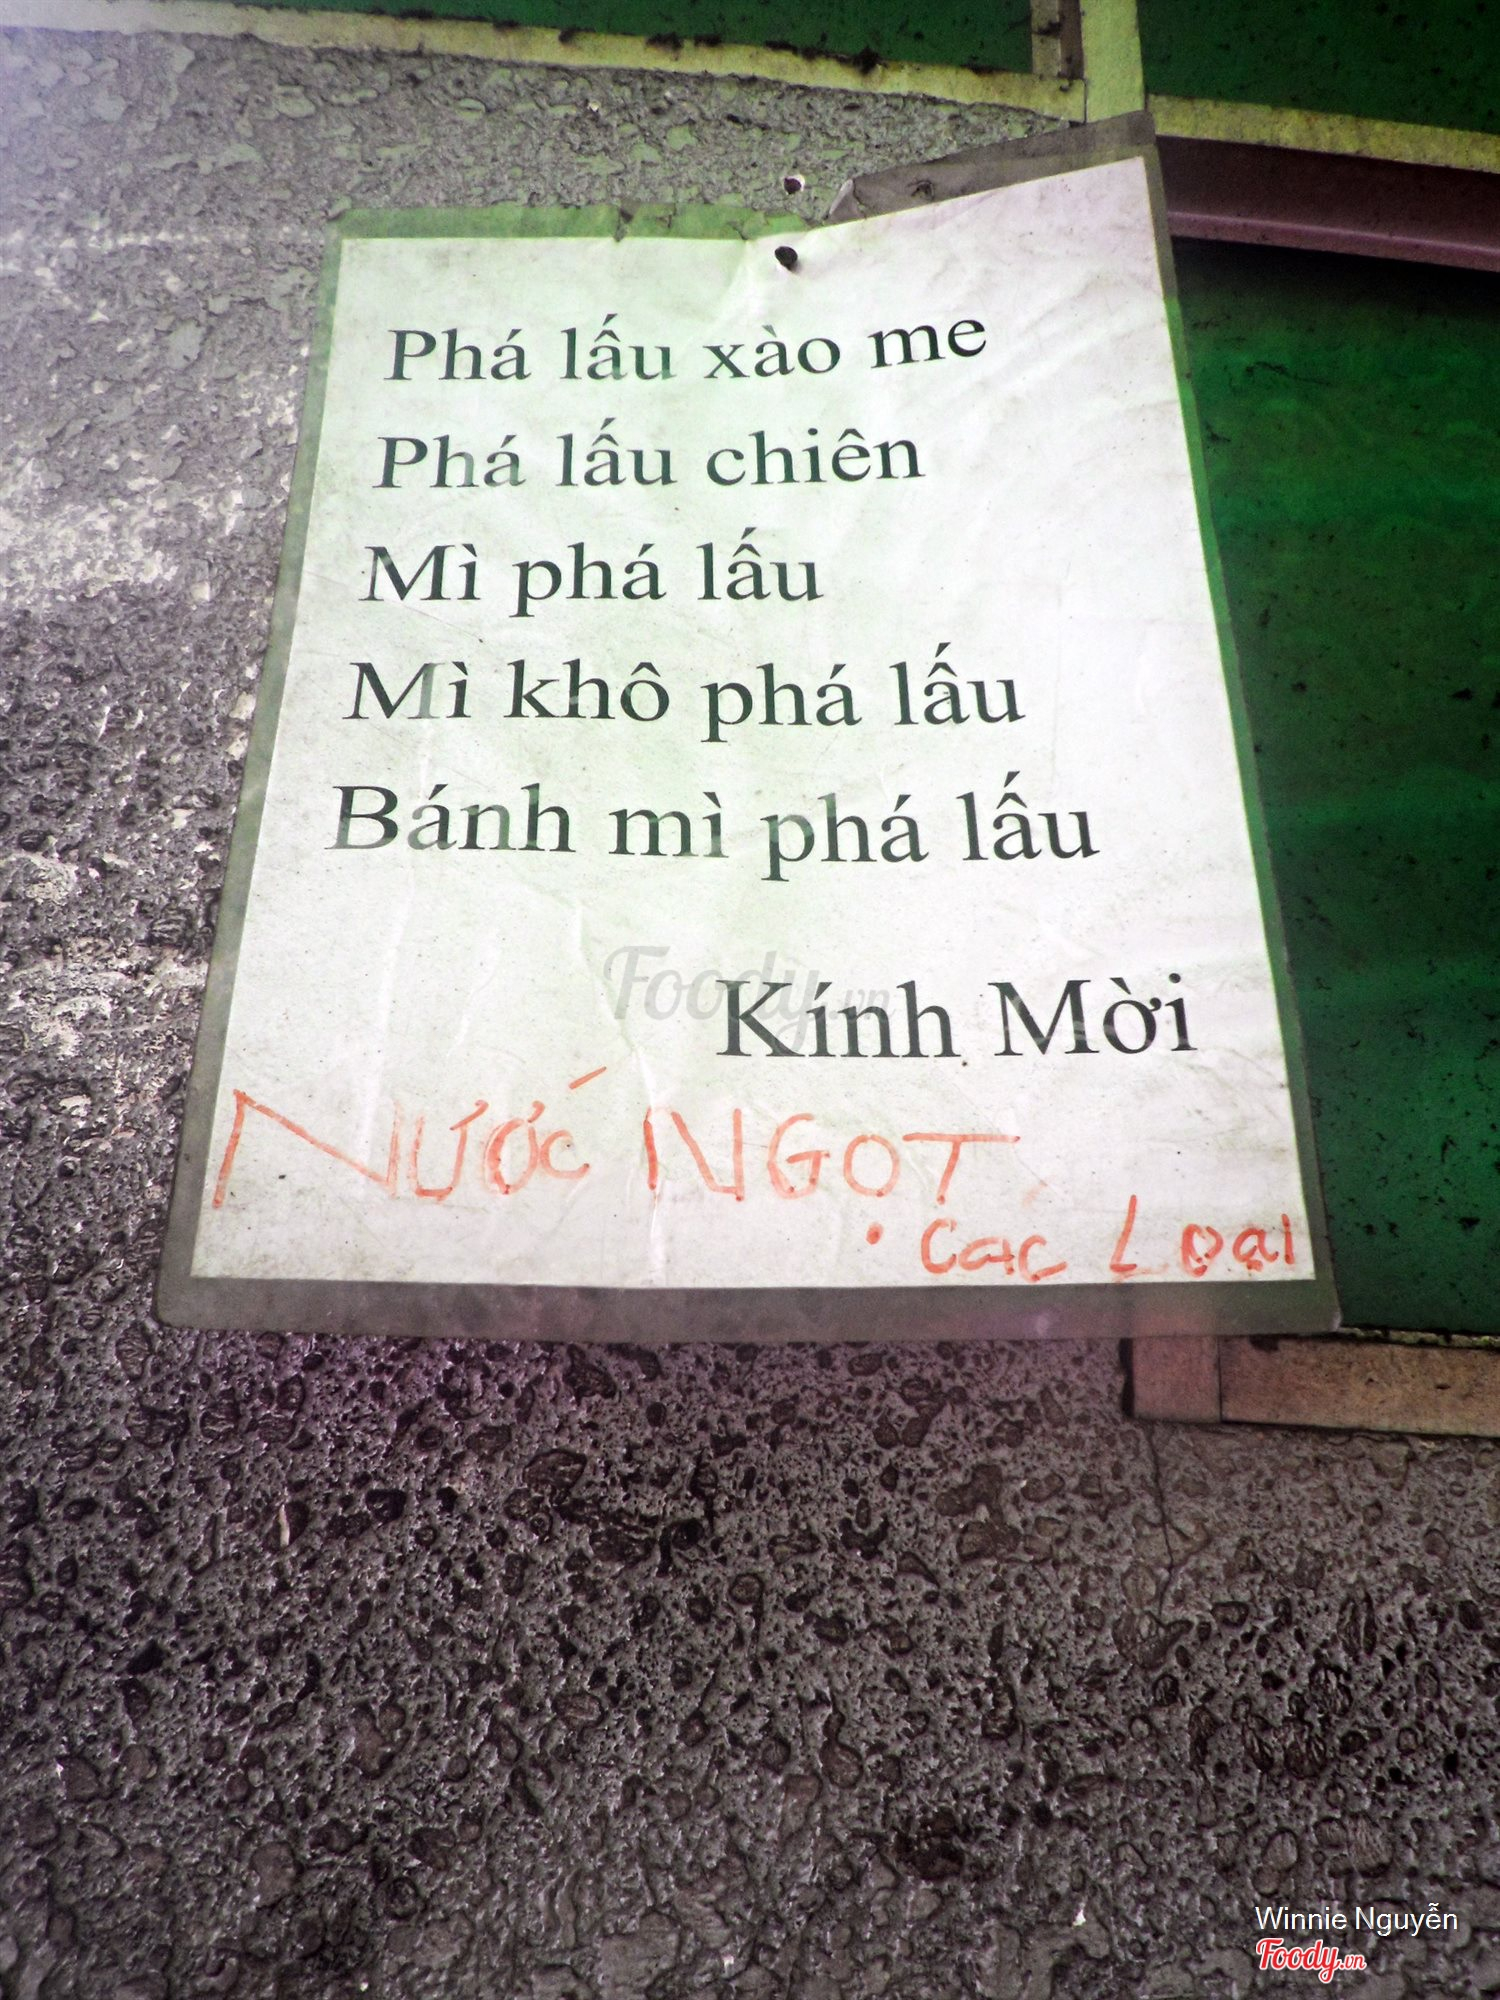 Phá lấu xào me
Phá lấu chiên
Mì phá lấu
Mì khô phá lấu
Bánh mì phá lấu
Foody.vn
Kính Mời
NƯỚC NGỌT
Các Loại
Winnie Nguyễn
Foody.vn